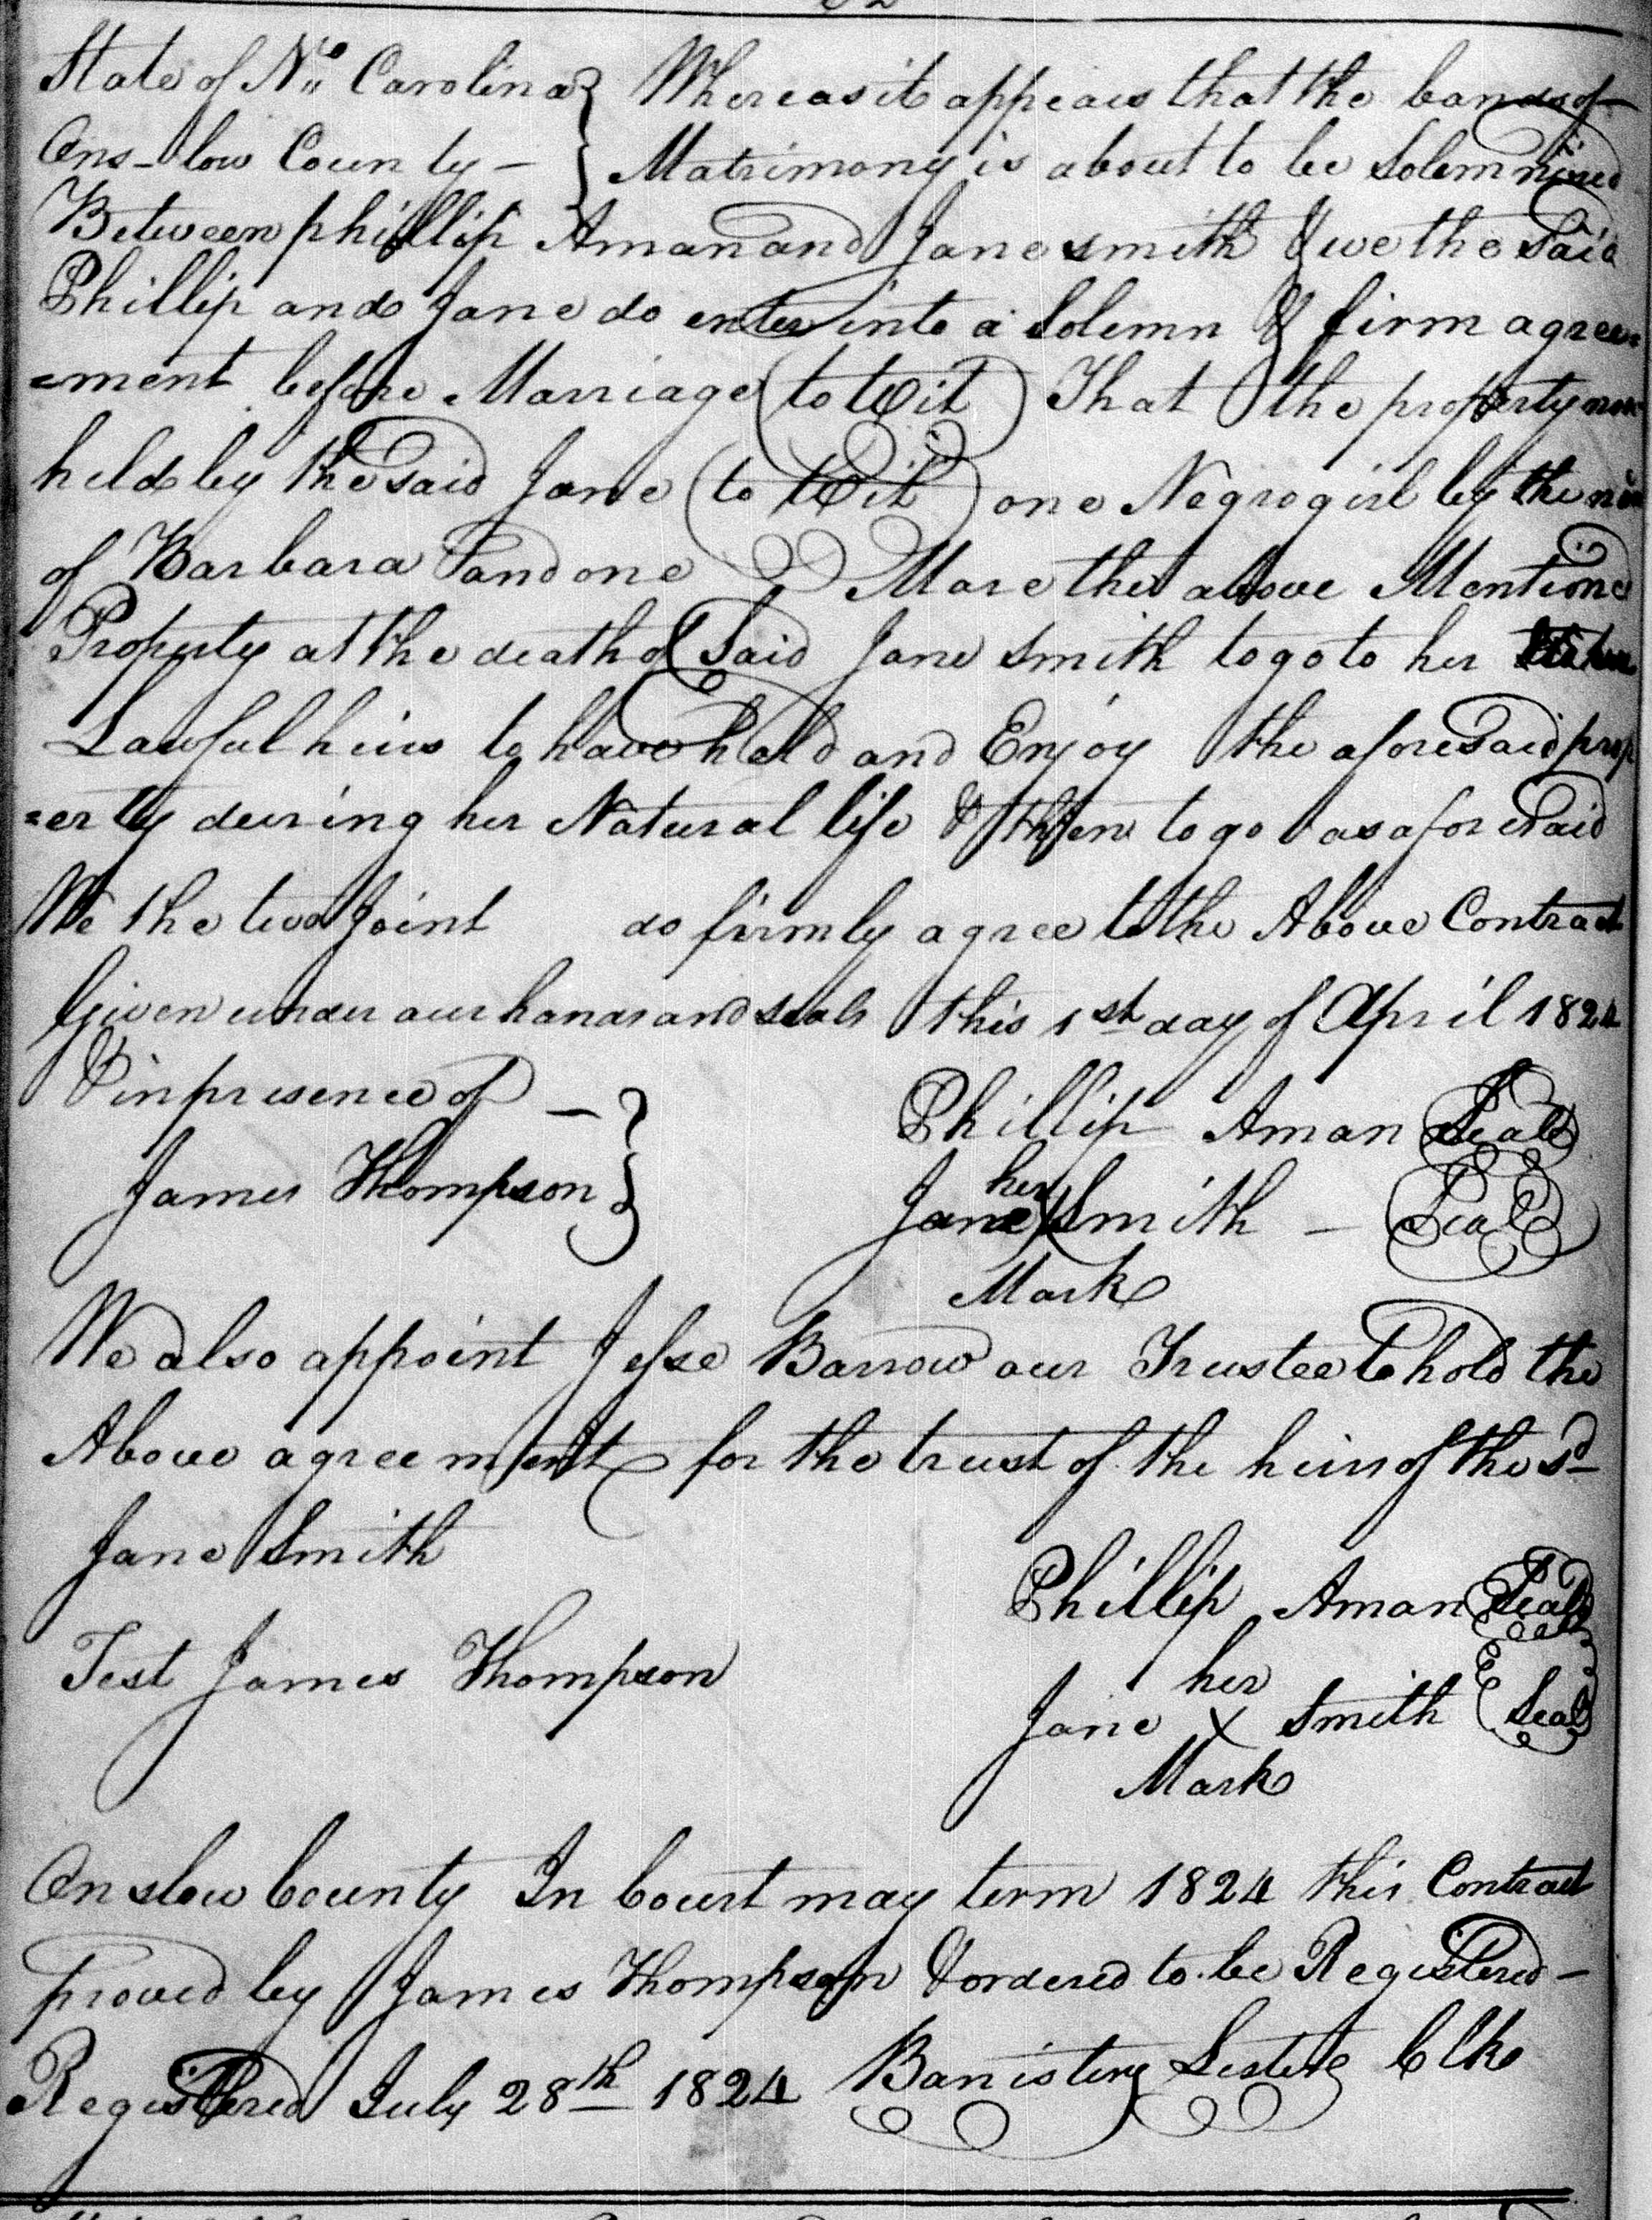 State of No. Carolina } Whereas it appears that the bands of
Ons-low County - } Matrimony is about to be Solemnized
Between phillip Aman and Jane smith & we the Said
Phillip and Jane do enter into a Solemn & firm agree=
=ment before Marriage (to Wit) That the property now
held by the said Jane (to Wit) one Negro girl by the
of Barbara and one Mare the above Mentioned
Property at the death of Said Jane Smith to go to her
Lawful heirs to have hold and Enjoy the aforesaid prop
=erty during her Natural life & then to go as aforesaid
We the two Joint do firmly agree to the Above Contract
Given under our hands and seals this 1st day of April 1824
in presence of - }
Phillip Aman Seal
James Thompson }
her
Jane X Smith - Seal
Mark
We also appoint Jesse Barrow our Trustee to hold the
Above agreement for the trust of the heirs of the sd
Jane Smith
Phillip Aman Seal
Test James Thompson
her
Jane X Smith Seal
Mark
Onslow County In Court may term 1824 this Contract
proved by James Thompson & ordered to be Registered -
Registered July 28th 1824 Banister Lester Clk